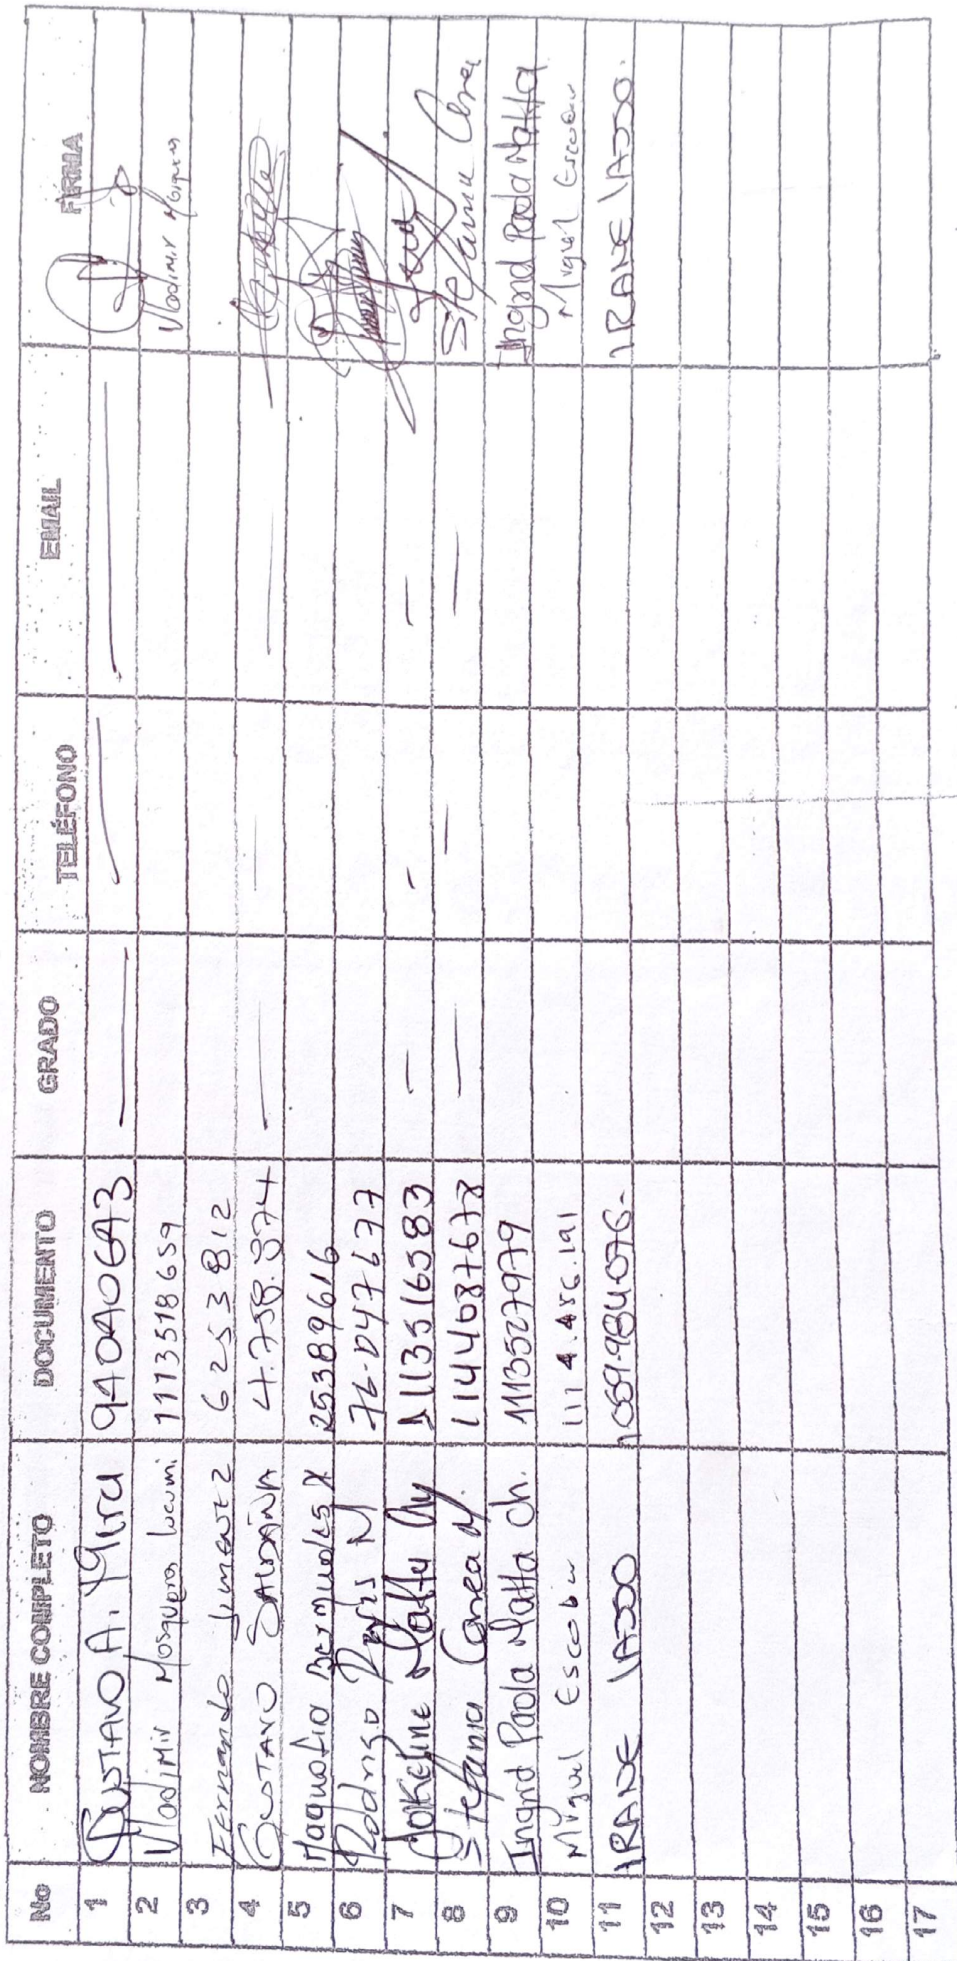 No NOMBRE COMPLETO DOCUMENTO GRADO TELÉFONO EMAIL FIRMA
1 GUSTAVO A. 94040643
2 Vladimir Mosquera Lucumi 1113518659 Vladimir Mosquera
3 Fernando Jimenez 6253812
4 GUSTAVO SALDAÑA 4.758.374
5 Magnolia Bermudes 25389616
6 Rodrigo 76-047677
7 1113516583
8 Stefania Correa M. 1144087678 Stefania Correa
9 Ingrid Paola Matta Ch. 1113527979 Ingrid Paola Matta
10 Miguel Escobar Miguel Escobar
11 IRANE LASSO 1059984076- IRANE LASSO.
12
13
14
15
16
17